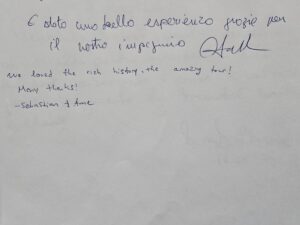 È stato una bella esperienza grazie per
il vostro impegno
We loved the rich history, the amazing tour!
Many thanks!
-Sebastian & Ame